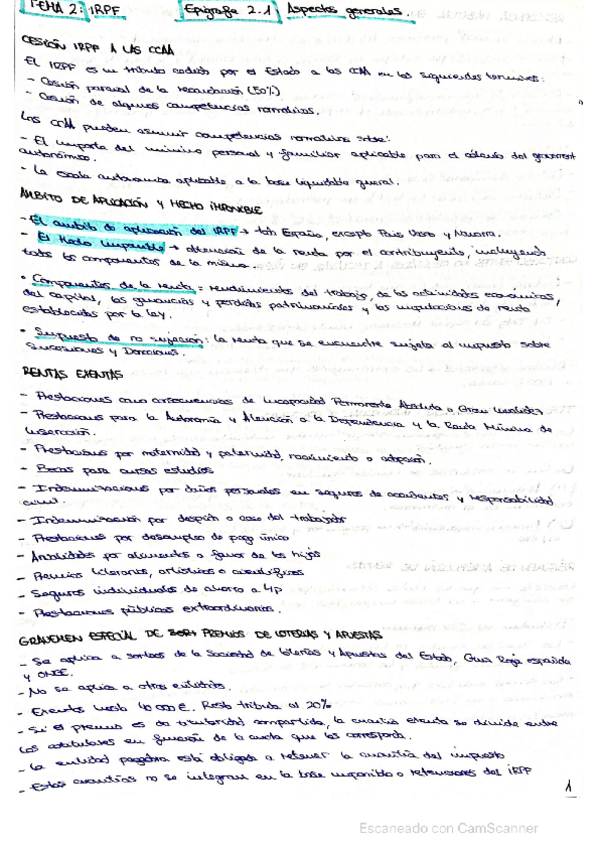 TEMA 2: IRPF Epígrafe 2.1 Aspectos generales.
CESIÓN IRPF A LAS CCAA
EL IRPF es un tributo cedido por el Estado a las CCAA en los siguientes términos:
- Cesión parcial de la recaudación (50%)
- Cesión de algunas competencias normativas.
Las CCAA pueden asumir competencias normativas sobre:
- El importe del mínimo personal y familiar aplicable para el cálculo del gravamen
autonómico.
- La escala autonómica aplicable a la base liquidable general.
ÁMBITO DE APLICACIÓN Y HECHO IMPONIBLE
- El ámbito de aplicación del IRPF → toda España, excepto País Vasco y Navarra.
- El Hecho Imponible → obtención de la renta por el contribuyente, incluyendo
todos los componentes de la misma.
• Componentes de la renta = rendimientos del trabajo, de las actividades económicas,
del capital, las ganancias y pérdidas patrimoniales y las imputaciones de renta
establecidas por la ley.
• Supuesto de no sujeción: la renta que se encuentre sujeta al impuesto sobre
Sucesiones y Donaciones.
RENTAS EXENTAS
- Prestaciones como consecuencias de Incapacidad Permanente Absoluta o Gran Invalidez
- Prestaciones para la Autonomía y Atención a la Dependencia y la Renta Mínima de
Inserción.
- Prestaciones por maternidad y paternidad, nacimiento o adopción.
- Becas para cursar estudios
- Indemnizaciones por daños personales en seguros de accidentes y responsabilidad
civil.
- Indemnización por despido o cese del trabajador
- Prestaciones por desempleo de pago único
- Anualidades por alimentos a favor de los hijos
- Premios literarios, artísticos o científicos
- Seguros individuales de ahorro a lp
- Prestaciones públicas extraordinarias.
GRAVAMEN ESPECIAL DE PREMIOS DE LOTERÍAS Y APUESTAS
- Se aplica a sorteos de la Sociedad de loterías y Apuestas del Estado, Cruz Roja española
y ONCE.
- No se aplica a otras entidades.
- Exentos hasta 40 000 €. Resto tributa al 20%
- Si el premio es de titularidad compartida, la cuantía exenta se divide entre
los cotitulares en función de la cuota que les corresponda.
- La entidad pagadora está obligada a retener la cuantía del impuesto
- Estas cuantías no se integran en la base imponible o retenciones del IRPF
1
Escaneado con CamScanner